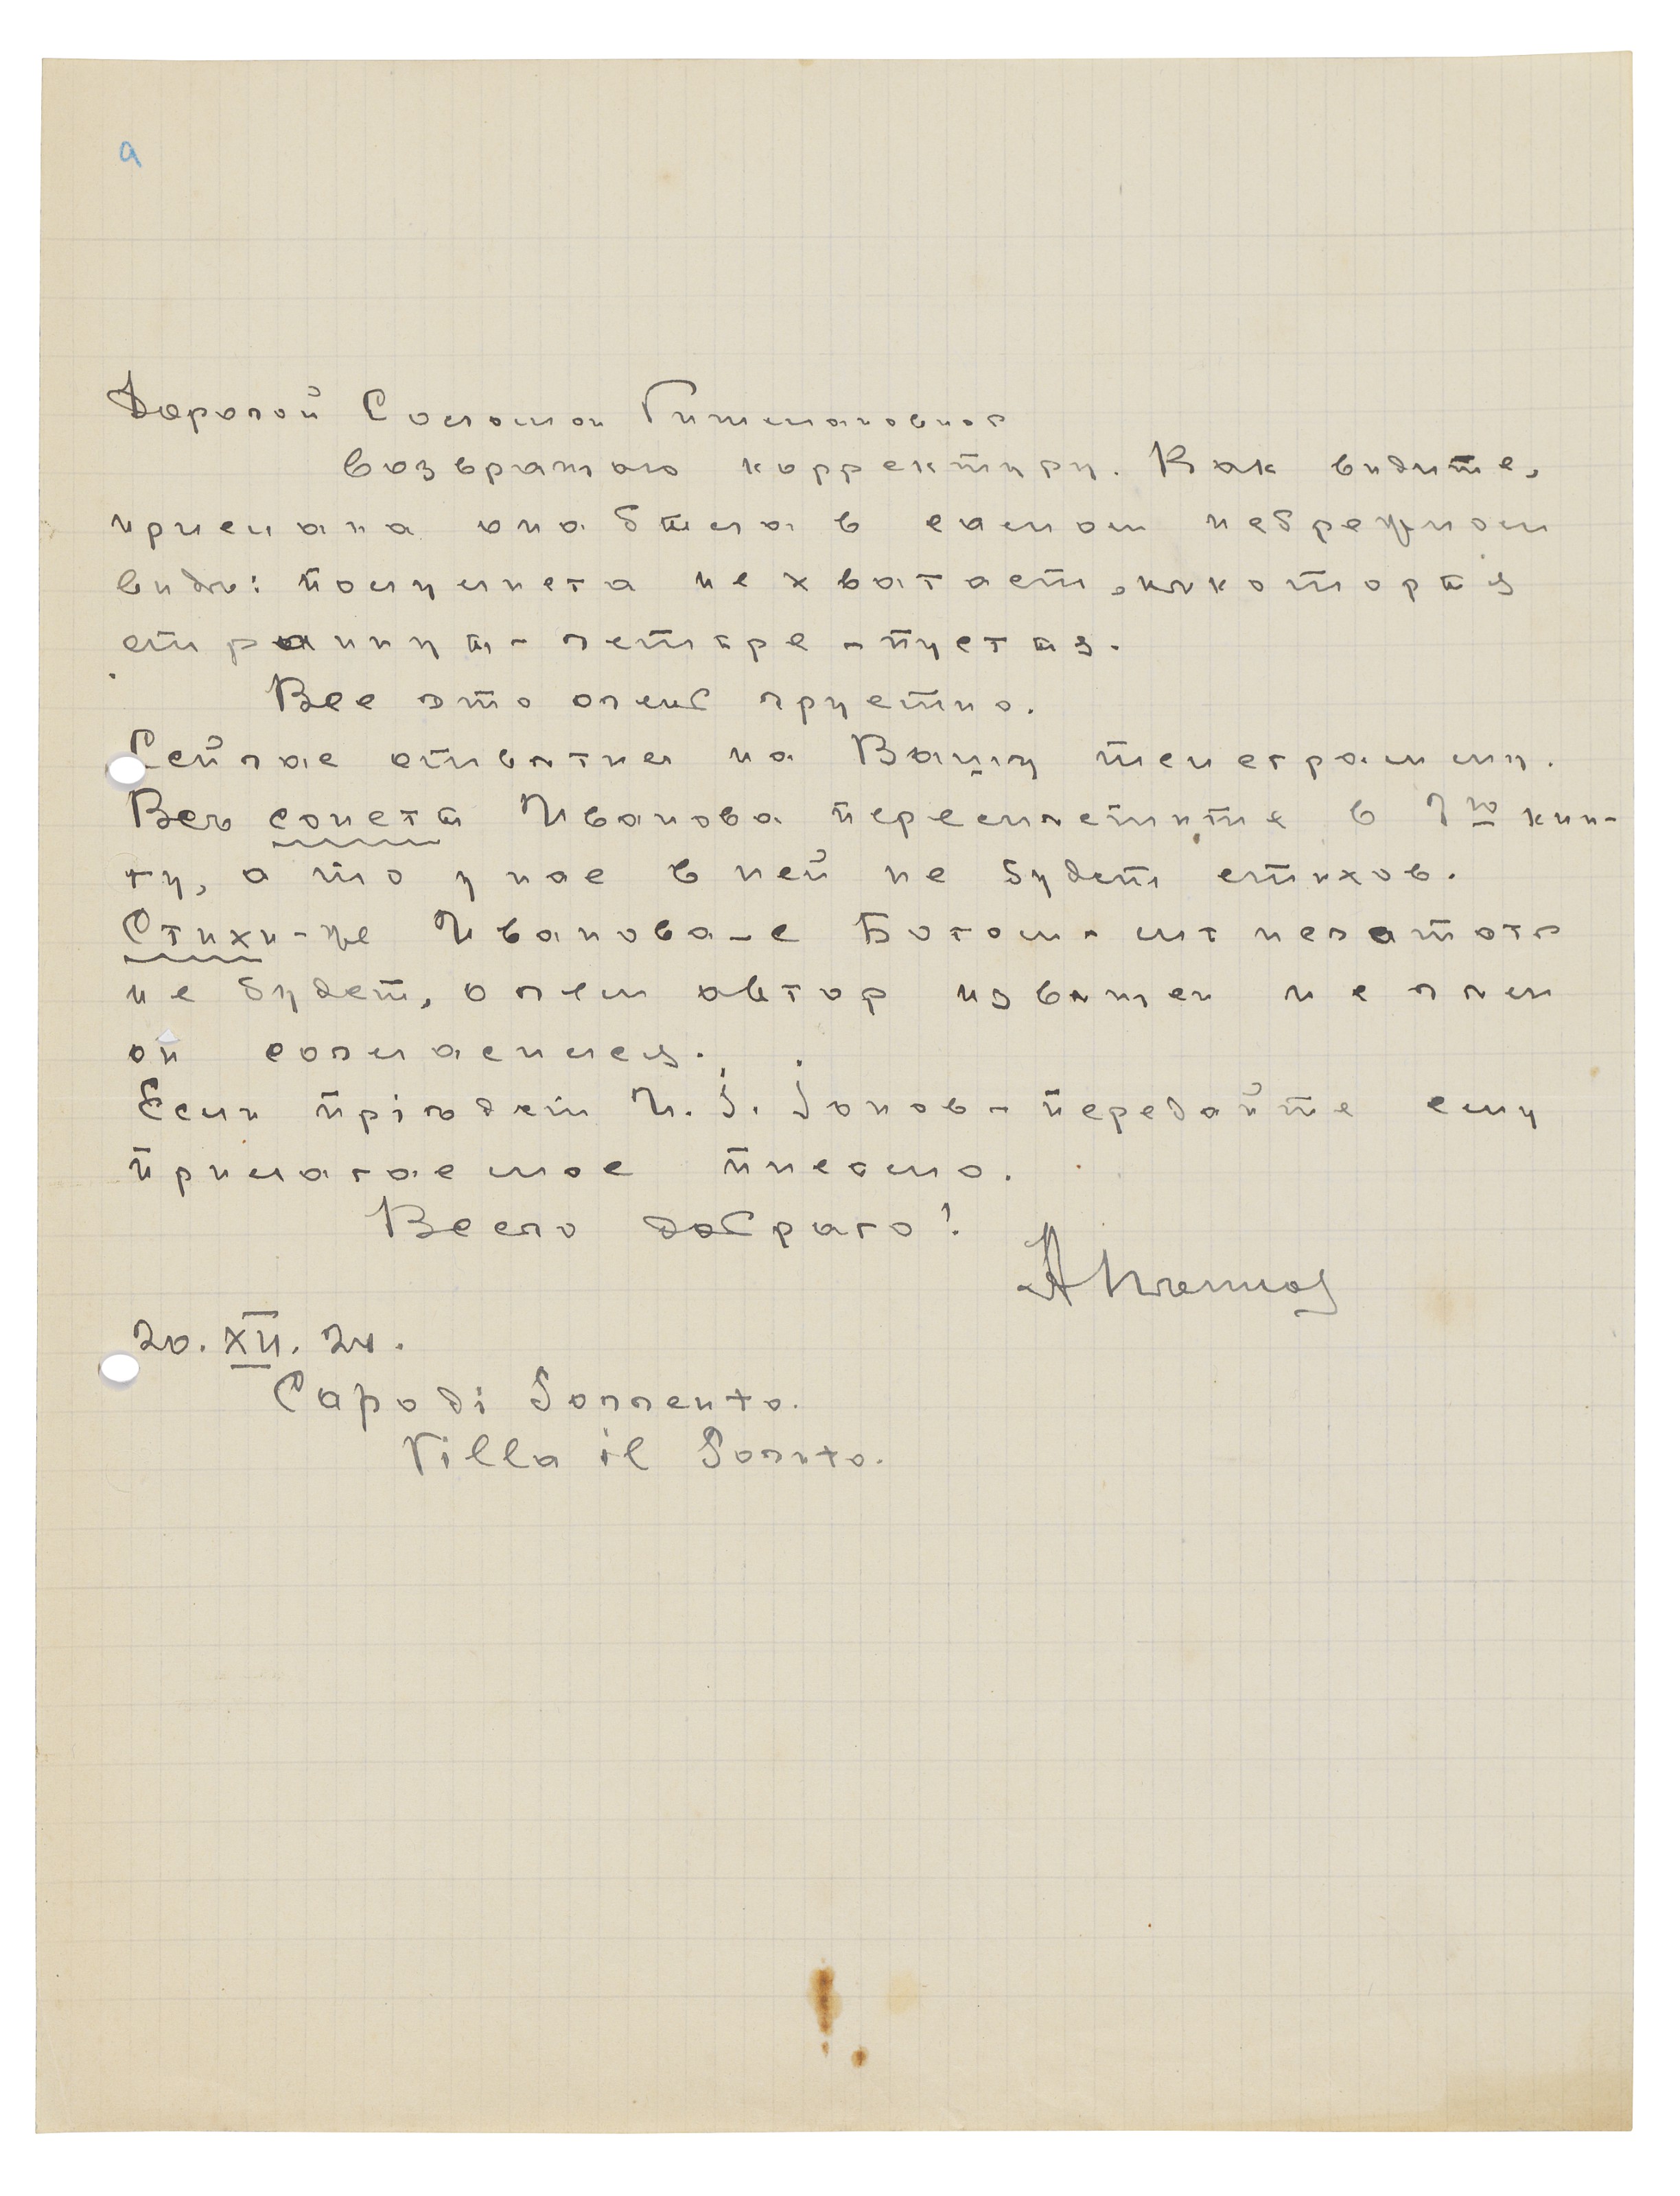 а
Дорогой Соломон Гитманович
возвращаю корректуру. Как видите,
прислана она была в самом небрежном
виде: полулиста не хватает, некоторыя
страницы – четыре – пустыя.
Все это очень грустно.
Сейчас ответил на Вашу телеграмму.
Все сонеты Иванова переместите в 7ю кни-
гу, а то у нас в ней не будет стихов.
Стихи-же Иванова – с Богом – мы печатать
не будем, о чем автор извещен и с чем
он согласился.
Если приѣдет И. І. Іонов – передайте ему
прилагаемое письмо.
Всего доброго!
А Пешков
20. XII. 24.
Capo di Sorrento.
Villa il Sorito.